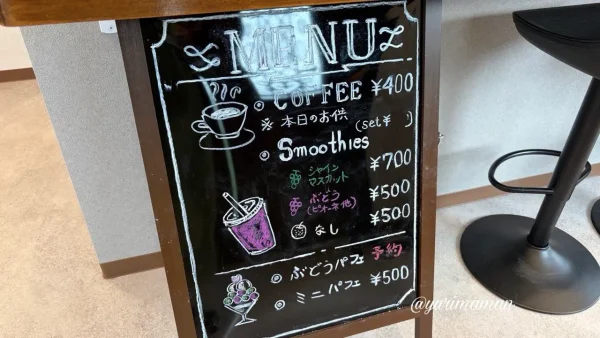 MENU
COFFEE ¥400
※ 本日のお供 (set¥ )
Smoothies
シャインマスカット ¥700
ぶどう (ピオーネ他) ¥500
なし ¥500
ぶどうパフェ 予約
ミニパフェ ¥500
@yurimaman